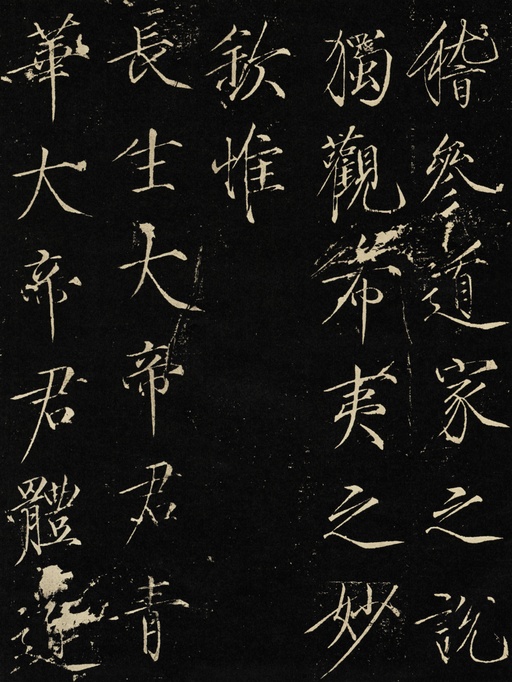 稽參道家之說
獨觀希夷之妙
欽惟
長生大帝君青
華大帝君體道